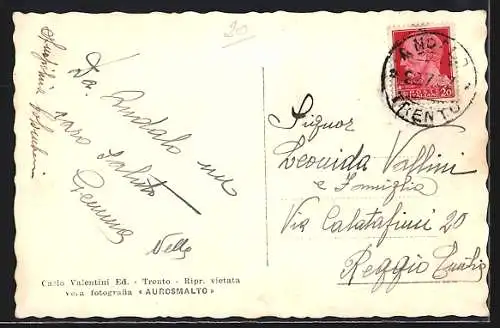 20
Da Andalo un
caro saluto
Gemma
Nella
Carlo Valentini Ed. - Trento - Ripr. vietata
Vera fotografia « AUROSMALTO »
ANDALO
TRENTO
20
Signor
Leonida Vallini
e Famiglia
Via Calatafimi 20
Reggio Emilia